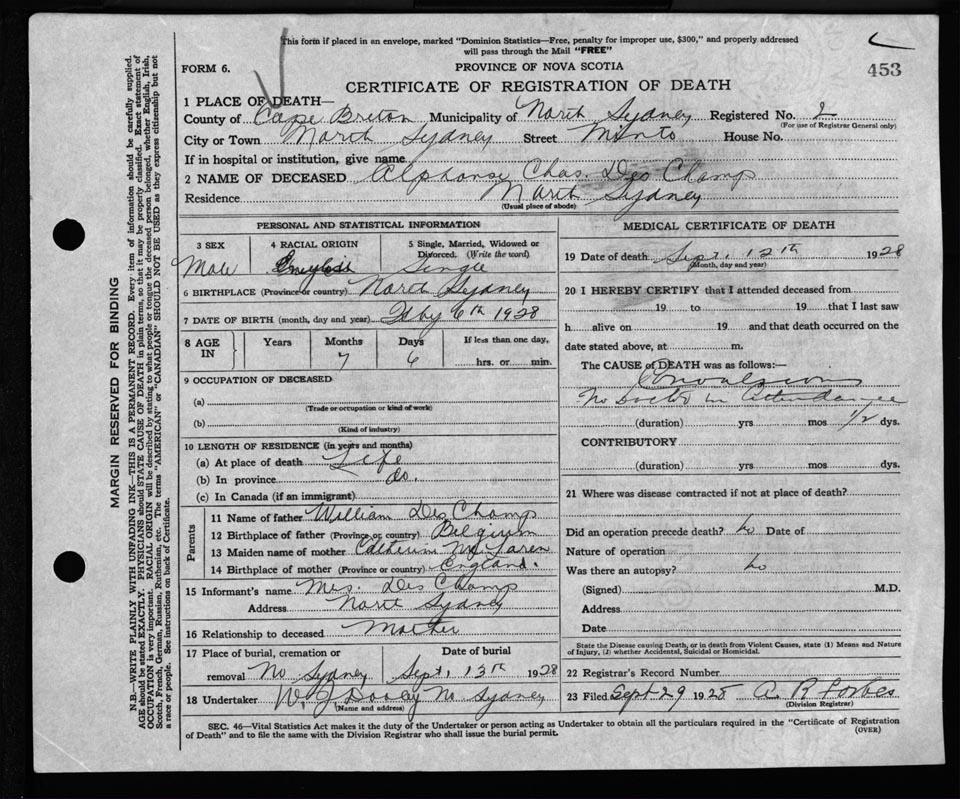 This form if placed in an envelope, marked "Dominion Statistics—Free, penalty for improper use, $300," and properly addressed
will pass through the Mail "FREE"
FORM 6. PROVINCE OF NOVA SCOTIA 453
CERTIFICATE OF REGISTRATION OF DEATH
1 PLACE OF DEATH—
County of Cape Breton Municipality of North Sydney Registered No. 2
(For use of Registrar General only)
City or Town North Sydney Street Minto House No.
If in hospital or institution, give name
2 NAME OF DECEASED Alphonse Chas. Des Champ
Residence North Sydney
(Usual place of abode)
PERSONAL AND STATISTICAL INFORMATION
3 SEX 4 RACIAL ORIGIN 5 Single, Married, Widowed or Divorced. (Write the word)
Male English Single
6 BIRTHPLACE (Province or country) North Sydney
7 DATE OF BIRTH (month, day and year) 6th 1928
8 AGE IN Years Months Days If less than one day,
7 6 hrs. or min.
9 OCCUPATION OF DECEASED
(a)
(Trade or occupation or kind of work)
(b)
(Kind of industry)
10 LENGTH OF RESIDENCE (in years and months)
(a) At place of death Life
(b) In province do.
(c) In Canada (if an immigrant)
Parents
11 Name of father William Des Champ
12 Birthplace of father (Province or country) Belgium
13 Maiden name of mother Catherine McLaren
14 Birthplace of mother (Province or country) England.
15 Informant's name Mrs. Des Champ
Address North Sydney
16 Relationship to deceased Mother
17 Place of burial, cremation or removal No Sydney Date of burial Sept. 13th 1928
18 Undertaker W. J. Dooley No Sydney
(Name and address)
MEDICAL CERTIFICATE OF DEATH
19 Date of death Sept. 12th 1928
(Month, day and year)
20 I HEREBY CERTIFY that I attended deceased from
19 to 19 that I last saw
h alive on 19 and that death occurred on the
date stated above, at m.
The CAUSE of DEATH was as follows:
Convulsions
No Doctor in Attendance
(duration) yrs mos 1/2 dys.
CONTRIBUTORY
(duration) yrs mos dys.
21 Where was disease contracted if not at place of death?
Did an operation precede death? no Date of
Nature of operation
Was there an autopsy? no
(Signed) M.D.
Address
Date
State the Disease causing Death, or in death from Violent Causes, state (1) Means and Nature
of Injury, (2) whether Accidental, Suicidal or Homicidal.
22 Registrar's Record Number
23 Filed Sept 29 1928 A. R. Forbes
(Division Registrar)
SEC. 46—Vital Statistics Act makes it the duty of the Undertaker or person acting as Undertaker to obtain all the particulars required in the "Certificate of Registration
of Death" and to file the same with the Division Registrar who shall issue the burial permit.
(OVER)
MARGIN RESERVED FOR BINDING
N.B.—WRITE PLAINLY WITH UNFADING INK—THIS IS A PERMANENT RECORD. Every item of information should be carefully supplied.
AGE should be stated EXACTLY. PHYSICIANS should STATE CAUSE OF DEATH in plain terms, so that it may be properly classified. Exact statement of
OCCUPATION is very important. RACIAL ORIGIN will be described by stating to what people or tongue the deceased person belonged, whether English, Irish,
Scotch, French, German, Russian, Ruthenian, etc. The terms "AMERICAN" or "CANADIAN" SHOULD NOT BE USED as they express citizenship but not
a race or people. See instructions on back of Certificate.